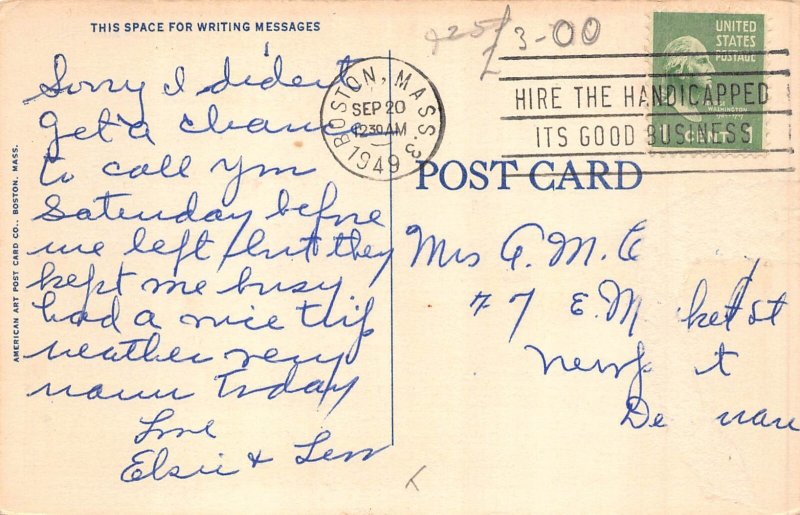 THIS SPACE FOR WRITING MESSAGES
Sorry I dident
get a chance
to call you
Saturday before
we left but they
kept me busy
had a nice trip
weather very
warm today
Love
Elsie &
AMERICAN ART POST CARD CO., BOSTON, MASS.
3-00
BOSTON, MASS. 3
SEP 20
1230 AM
1949
HIRE THE HANDICAPPED
ITS GOOD BUSINESS
UNITED
STATES
POSTAGE
WASHINGTON
1 CENT 1
POST CARD
Mrs
77 E. M ket St
Newp t
De ware